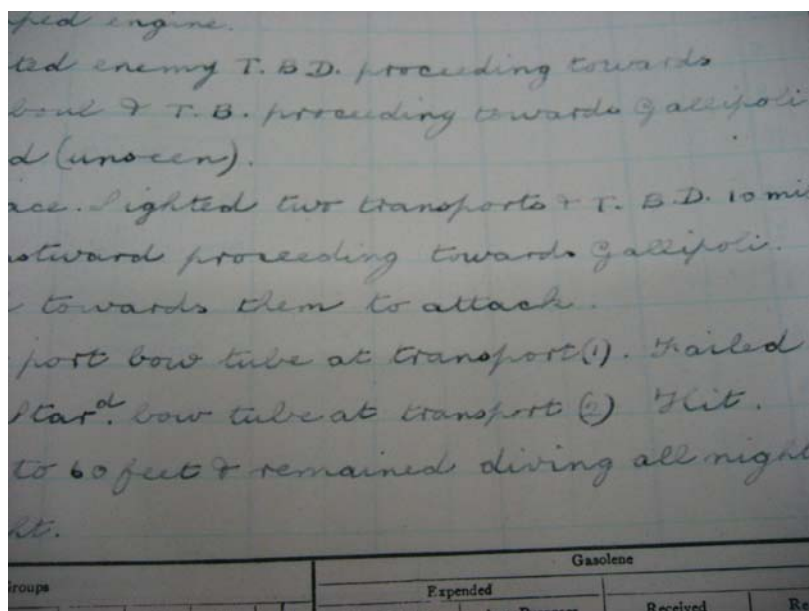 ped engine.
ted enemy T.B.D. proceeding towards
boul & T.B. proceeding towards Gallipoli
d (unseen).
ace. Sighted two transports & T.B.D. 10 mi
stward proceeding towards Gallipoli.
towards them to attack.
port bow tube at transport (1). Failed
Star.d bow tube at transport (2) Hit.
to 60 feet & remained diving all night
ht.
Groups
Gasolene
Expended
Received